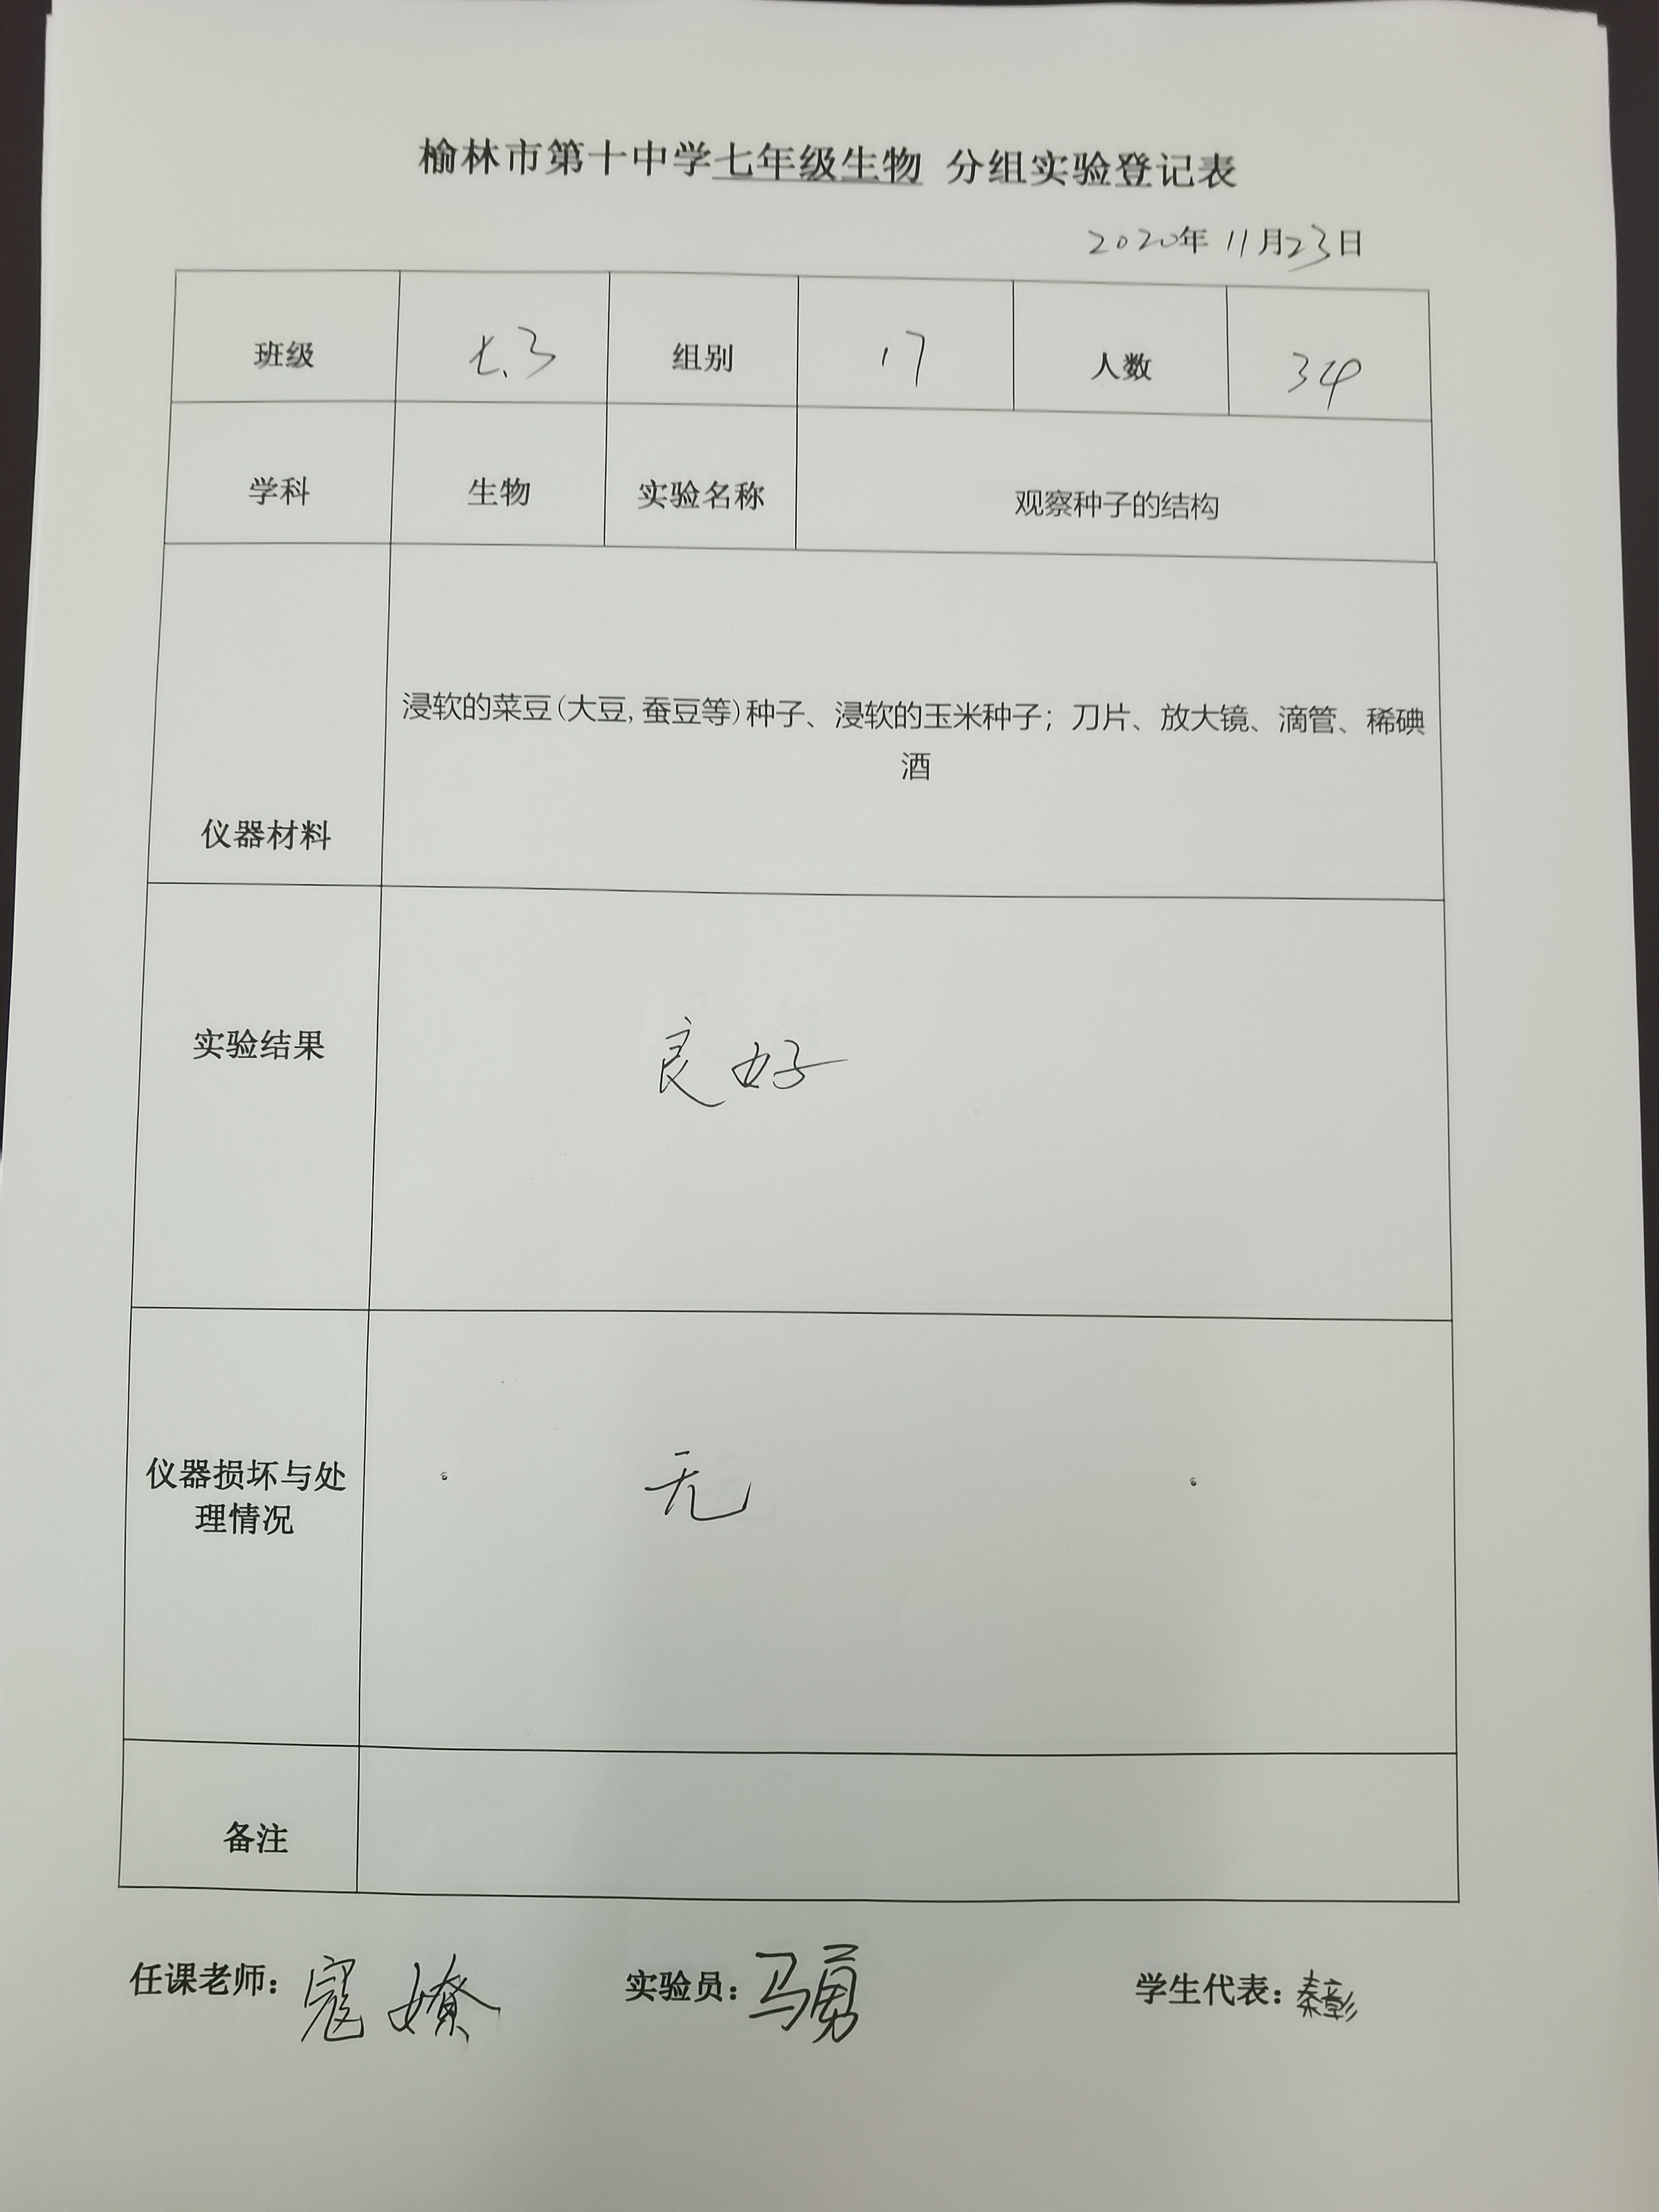 榆林市第十中学七年级生物 分组实验登记表
2020年 11月23日
班级 七.3 组别 17 人数 34
学科 生物 实验名称 观察种子的结构
浸软的菜豆(大豆,蚕豆等)种子、浸软的玉米种子；刀片、放大镜、滴管、稀碘
酒
仪器材料
实验结果 良好
仪器损坏与处
理情况
无
备注
任课老师：寇嫽 实验员：马勇 学生代表：秦彰